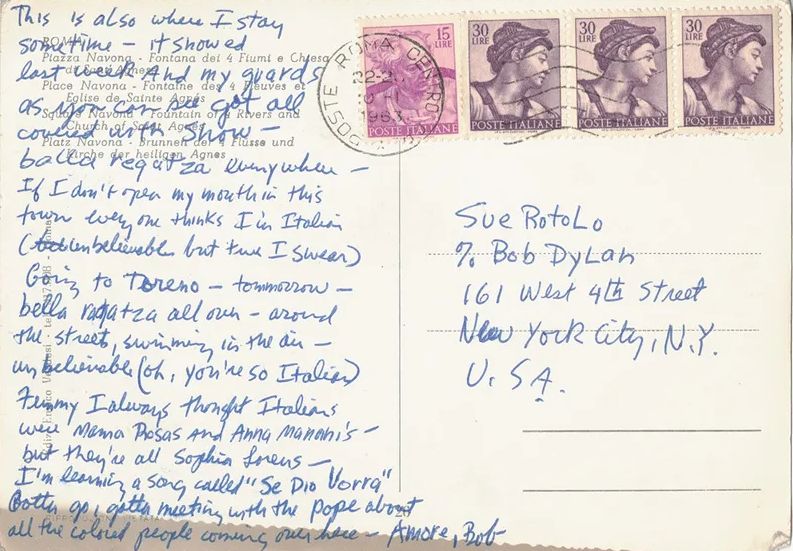 This is also where I stay
some time – it snowed
last week and my guards
as you can see got all
covered with snow –
balla regatza everywhere –
If I don't open my mouth in this
town every one thinks I'm Italian
(unbelievable but true I swear)
Going to Toreno – tommorrow –
bella ragatza all over – around
the street, swimming in the air –
unbelievable (oh, you're so Italian)
Funny I always thought Italians
were Mama Rosas and Anna Mannani's –
but they're all Sophia Lorens –
I'm learning a song called "Se Dio Vorra"
Gotta go, gotta meeting with the pope about
all the colored people coming over here – Amore, Bob
ROMA
Piazza Navona - Fontana dei 4 Fiumi e Chiesa
di Sant'Agnese
Place Navona - Fontaine des 4 Fleuves et
Eglise de Sainte Agnès
Square Navona - Fountain of 4 Rivers and
Church of Saint Agnes
Platz Navona - Brunnen der 4 Flüsse und
Kirche der heiligen Agnes
15
LIRE
POSTE ITALIANE
30
LIRE
POSTE ITALIANE
30
LIRE
POSTE ITALIANE
30
LIRE
POSTE ITALIANE
POSTE ROMA CENTRO
1963
Sue Rotolo
% Bob Dylan
161 West 4th Street
New York City, N.Y.
U.S.A.